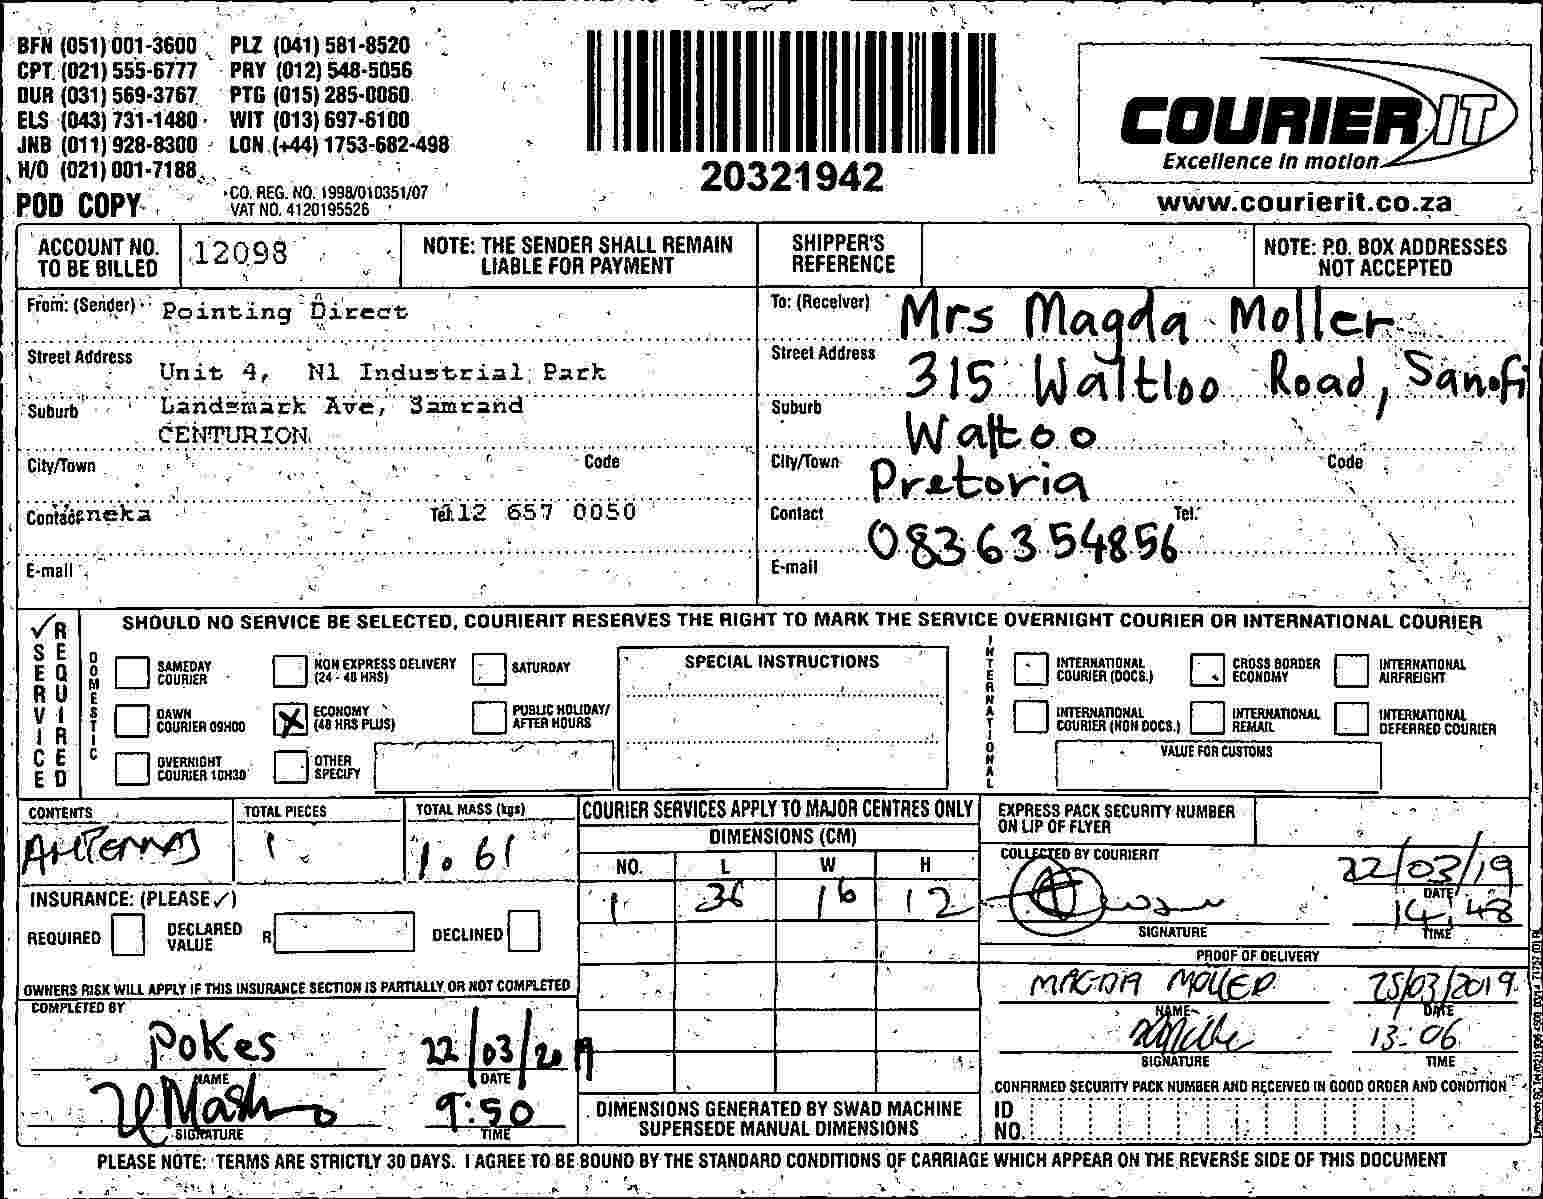 BFN (051) 001-3600 PLZ (041) 581-8520
CPT (021) 555-6777 PRY (012) 548-5056
DUR (031) 569-3767 PTG (015) 285-0060
ELS (043) 731-1480 WIT (013) 697-6100
JNB (011) 928-8300 LON (+44) 1753-682-498
H/O (021) 001-7188
CO. REG. NO. 1998/010351/07
POD COPY
VAT NO. 4120195526
20321942
COURIER IT
Excellence in motion
www.courierit.co.za
ACCOUNT NO. TO BE BILLED
12098
NOTE: THE SENDER SHALL REMAIN LIABLE FOR PAYMENT
SHIPPER'S REFERENCE
NOTE: P.O. BOX ADDRESSES NOT ACCEPTED
From: (Sender) Pointing Direct
Street Address
Unit 4, N1 Industrial Park
Suburb Landsmark Ave, Samrand
CENTURION
City/Town Code
Contact neka Tel: 12 657 0050
E-mail
To: (Receiver) Mrs Magda Moller
Street Address 315 Waltloo Road, Sanofi
Suburb Waltoo
City/Town Pretoria Code
Contact 0836354856 Tel:
E-mail
✓ SERVICE REQUIRED
SHOULD NO SERVICE BE SELECTED, COURIERIT RESERVES THE RIGHT TO MARK THE SERVICE OVERNIGHT COURIER OR INTERNATIONAL COURIER
DOMESTIC
SAMEDAY COURIER
NON EXPRESS DELIVERY (24 - 48 HRS)
SATURDAY
DAWN COURIER 09H00
X ECONOMY (48 HRS PLUS)
PUBLIC HOLIDAY/ AFTER HOURS
OVERNIGHT COURIER 10H30
OTHER SPECIFY
SPECIAL INSTRUCTIONS
INTERNATIONAL
INTERNATIONAL COURIER (DOCS.)
CROSS BORDER ECONOMY
INTERNATIONAL AIRFREIGHT
INTERNATIONAL COURIER (NON DOCS.)
INTERNATIONAL REMAIL
INTERNATIONAL DEFERRED COURIER
VALUE FOR CUSTOMS
CONTENTS
ANTENNAS
TOTAL PIECES
1
TOTAL MASS (kgs)
1.61
INSURANCE: (PLEASE ✓)
REQUIRED
DECLARED VALUE R
DECLINED
OWNERS RISK WILL APPLY IF THIS INSURANCE SECTION IS PARTIALLY OR NOT COMPLETED
COMPLETED BY
Pokes 22/03/2019
NAME DATE
9:50
SIGNATURE TIME
COURIER SERVICES APPLY TO MAJOR CENTRES ONLY
DIMENSIONS (CM)
NO. L W H
1 36 16 12
DIMENSIONS GENERATED BY SWAD MACHINE
SUPERSEDE MANUAL DIMENSIONS
EXPRESS PACK SECURITY NUMBER ON LIP OF FLYER
COLLECTED BY COURIERIT
22/03/19
DATE
14:48
SIGNATURE TIME
PROOF OF DELIVERY
MAGDA MOLLER 25/03/2019
NAME DATE
13:06
SIGNATURE TIME
CONFIRMED SECURITY PACK NUMBER AND RECEIVED IN GOOD ORDER AND CONDITION
ID NO.
PLEASE NOTE: TERMS ARE STRICTLY 30 DAYS. I AGREE TO BE BOUND BY THE STANDARD CONDITIONS OF CARRIAGE WHICH APPEAR ON THE REVERSE SIDE OF THIS DOCUMENT